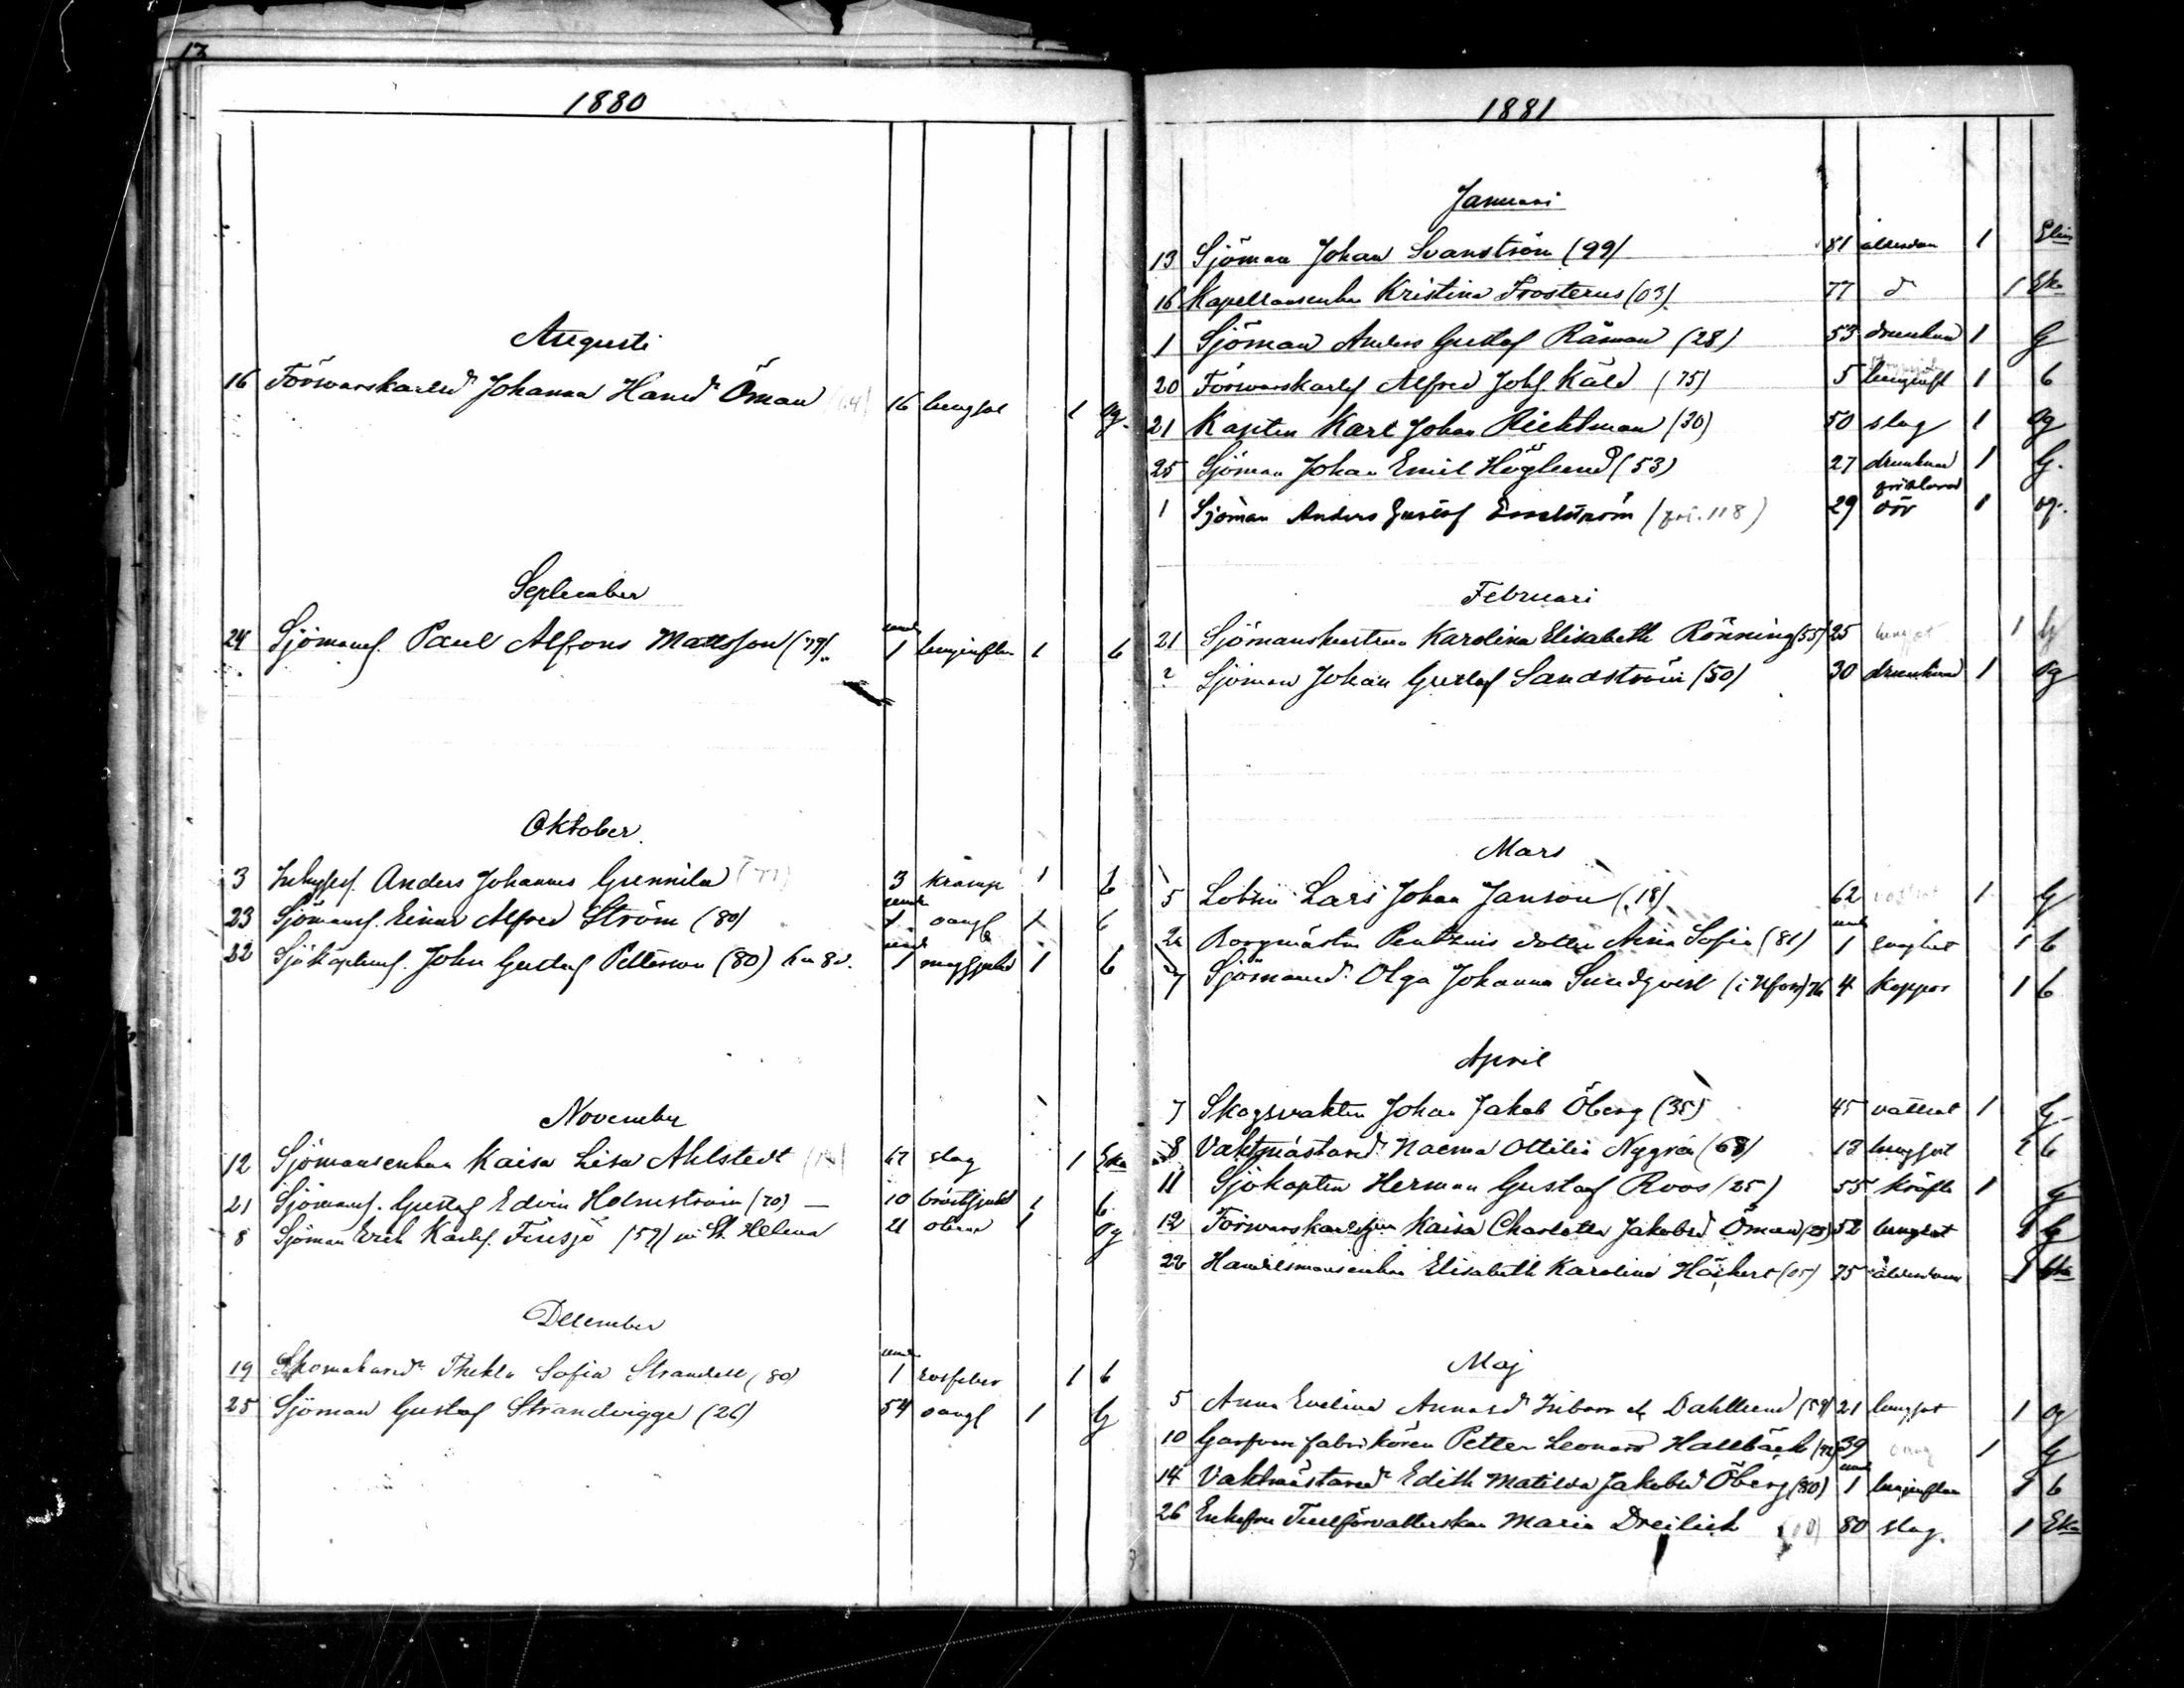 17
1880
Augusti
16 Förswarskarlsd. Johanna Hansd. Öman 16 lungsot 1 og.
September
24 Sjömans. Paul Alfons Mattsson (79). 1 lunginflm 1 b
Oktober
3 Anders Johannes Gunnila (77) 3 kramp 1 b
23 Sjömans. Einar Alfred Ström (80) 1 oangf 1 b
22 Sjökaptens. John Gustaf Petterson (80) 8 d. 1 1 b
November
12 Sjömansenkan Kaisa Lisa Ahlstedt 67 slag 1 Eka
21 Sjömans. Gustaf Edvin Holmström (70) — 10 bröstsjukd 1 b
8 Sjöman Erik Karls. Finsjö (59) St. Helena 21 1 og
December
19 Skomakared. Thekla Sofia Strandell (80) 1 rosfeber 1 b
25 Sjöman Gustaf Strandvigge (26) 54 oangf 1 G
1881
Januari
13 Sjöman Johan Svanström (99) 81 ålderdom 1
16 Kapellansenkan Kristina Frosterus (03) 77 d 1 Eka
1 Sjöman Anders Gustaf Råman (28) 53 drunknad 1 G
20 Förswarskarls. Alfred Johs. Käld (75) 5 lunginfl 1 b
21 Kapten Karl Johan Richtman (30) 50 slag 1 og
25 Sjöman Johan Emil Höglund (53) 27 drunknad 1 G.
1 Sjöman Anders Gustaf (118) 29 förklarad död 1 og.
Februari
21 Sjömanshustrun Karolina Elisabeth Rönning (55) 25 lungsot 1 G
? Sjöman Johan Gustaf Sandström (50) 30 drunknad 1 og
Mars
5 Lotsen Lars Johan Janson (18) 62 1 G
2 Borgmästar dotter Aina Sofia (81) 1 1 b
7 Sjömansd. Olga Johanna Sundqvist (i Hfors) 76 4 koppor 1 b
April
7 Skogsvakten Johan Jakob Öberg (35) 45 vattsot 1 G
8 Vaktmästared. Naema Ottilia Nygrén (68) 13 lungsot 1 b
11 Sjökapten Herman Gustaf Roos (25) 55 kräfta 1 G
12 Förswarskarls Kaisa Charlotta Jakobsd Öman (28) 52 lungsot 1 G
22 Handelsmansenkan Elisabeth Karolina Höckert (05) 75 ålderdom 1 Eka
Maj
5 Anna Evelina Annasd Dahllund (59) 21 lungsot 1 og
10 Garfveri fabrikören Petter Leonard Hallbäck (42) 39 1 G
14 Vaktmästared Edith Matilda Jakobsd Öberg (80) 1 lunginflm 1 b
26 Enkefru Tullförvalterskan Maria Dreilich 80 slag. 1 Eka